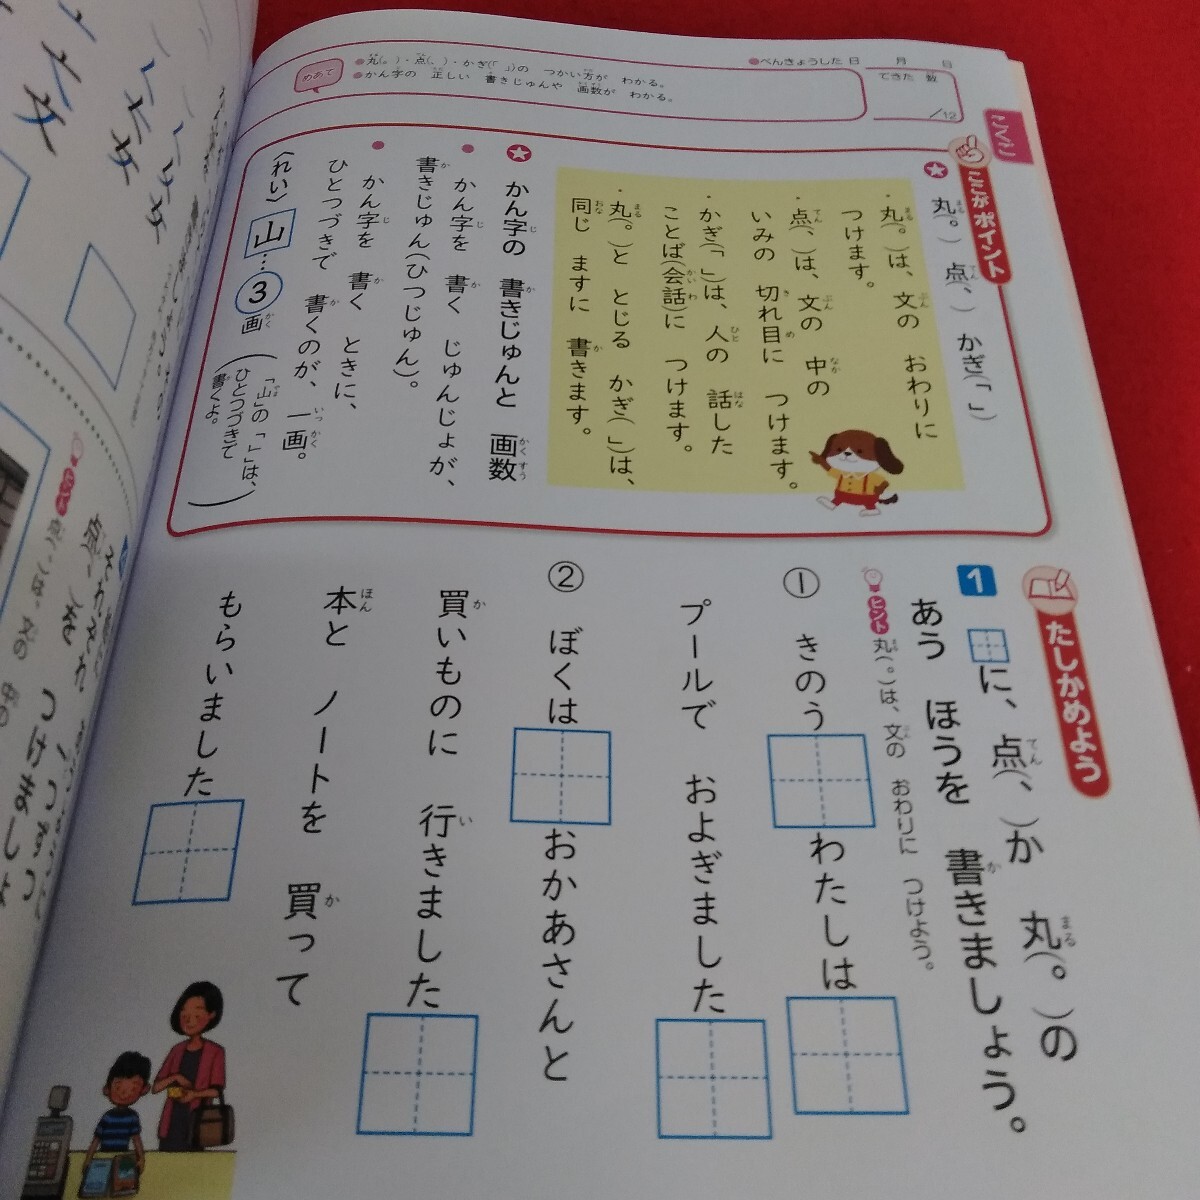 めあて
●丸(。)・点(、)・かぎ(「 」)の つかい方が わかる。
●かん字の 正しい 書きじゅんや 画数が わかる。
●べんきょうした 日 月 日
できた 数
/12
こくご
ここが ポイント
★ 丸(。) 点(、) かぎ(「 」)
・丸(。)は、文の おわりに
つけます。
・点(、)は、文の 中の
いみの 切れ目に つけます。
・かぎ(「 」)は、人の 話した
ことば(会話)に つけます。
・丸(。)と とじる かぎ(」)は、
同じ ますに 書きます。
★ かん字の 書きじゅんと 画数
● かん字を 書く じゅんじょが、
書きじゅん(ひつじゅん)。
● かん字を 書く ときに、
ひとつづきで 書くのが、一画。
〈れい〉 山…③画
(「山」の「㇄」は、
ひとつづきで
書くよ。)
たしかめよう
1 □に、点(、)か 丸(。)の
あう ほうを 書きましょう。
ヒント 丸(。)は、文の おわりに つけよう。
① きのう□わたしは□
プールで およぎました□
② ぼくは□おかあさんと
買いものに 行きました□
本と ノートを 買って
もらいました□